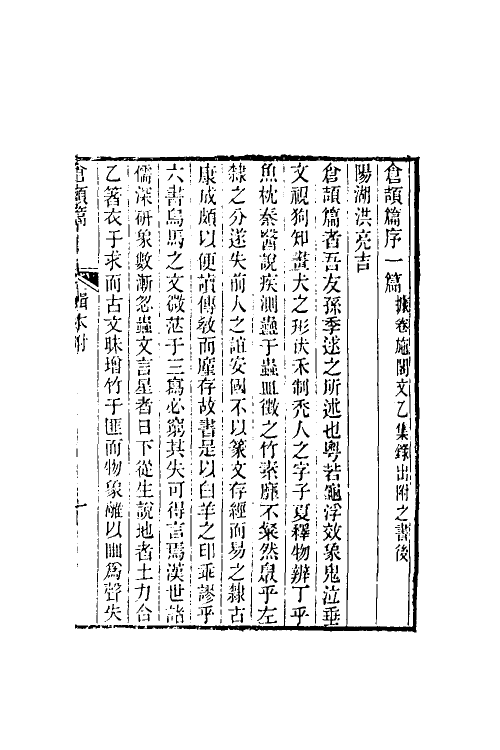 倉頡篇序一篇 據卷施閣文乙集錄出附之書後
陽湖洪亮吉
倉頡篇者吾友孫季逑之所述也粤若龜浮效象鬼泣垂
文視狗知畫犬之形伏禾制秃人之字子夏釋物辨丁乎
魚枕秦醫說疾測蠱于蟲皿徵之竹素靡不粲然泉乎左
隸之分遂失前人之誼安國不以篆文存經而易之隸古
康成頗以便讀傳敎而廑存故書是以白羊之印乖謬乎
六書烏馬之文微茫于三寫必窮其失可得言焉漢世諸
儒深研象數漸忽蟲文言星者日下從生說地者土力合
乙箸衣于求而古文昧增竹于匪而物象離以皿爲聲失
倉頡篇 輯本附